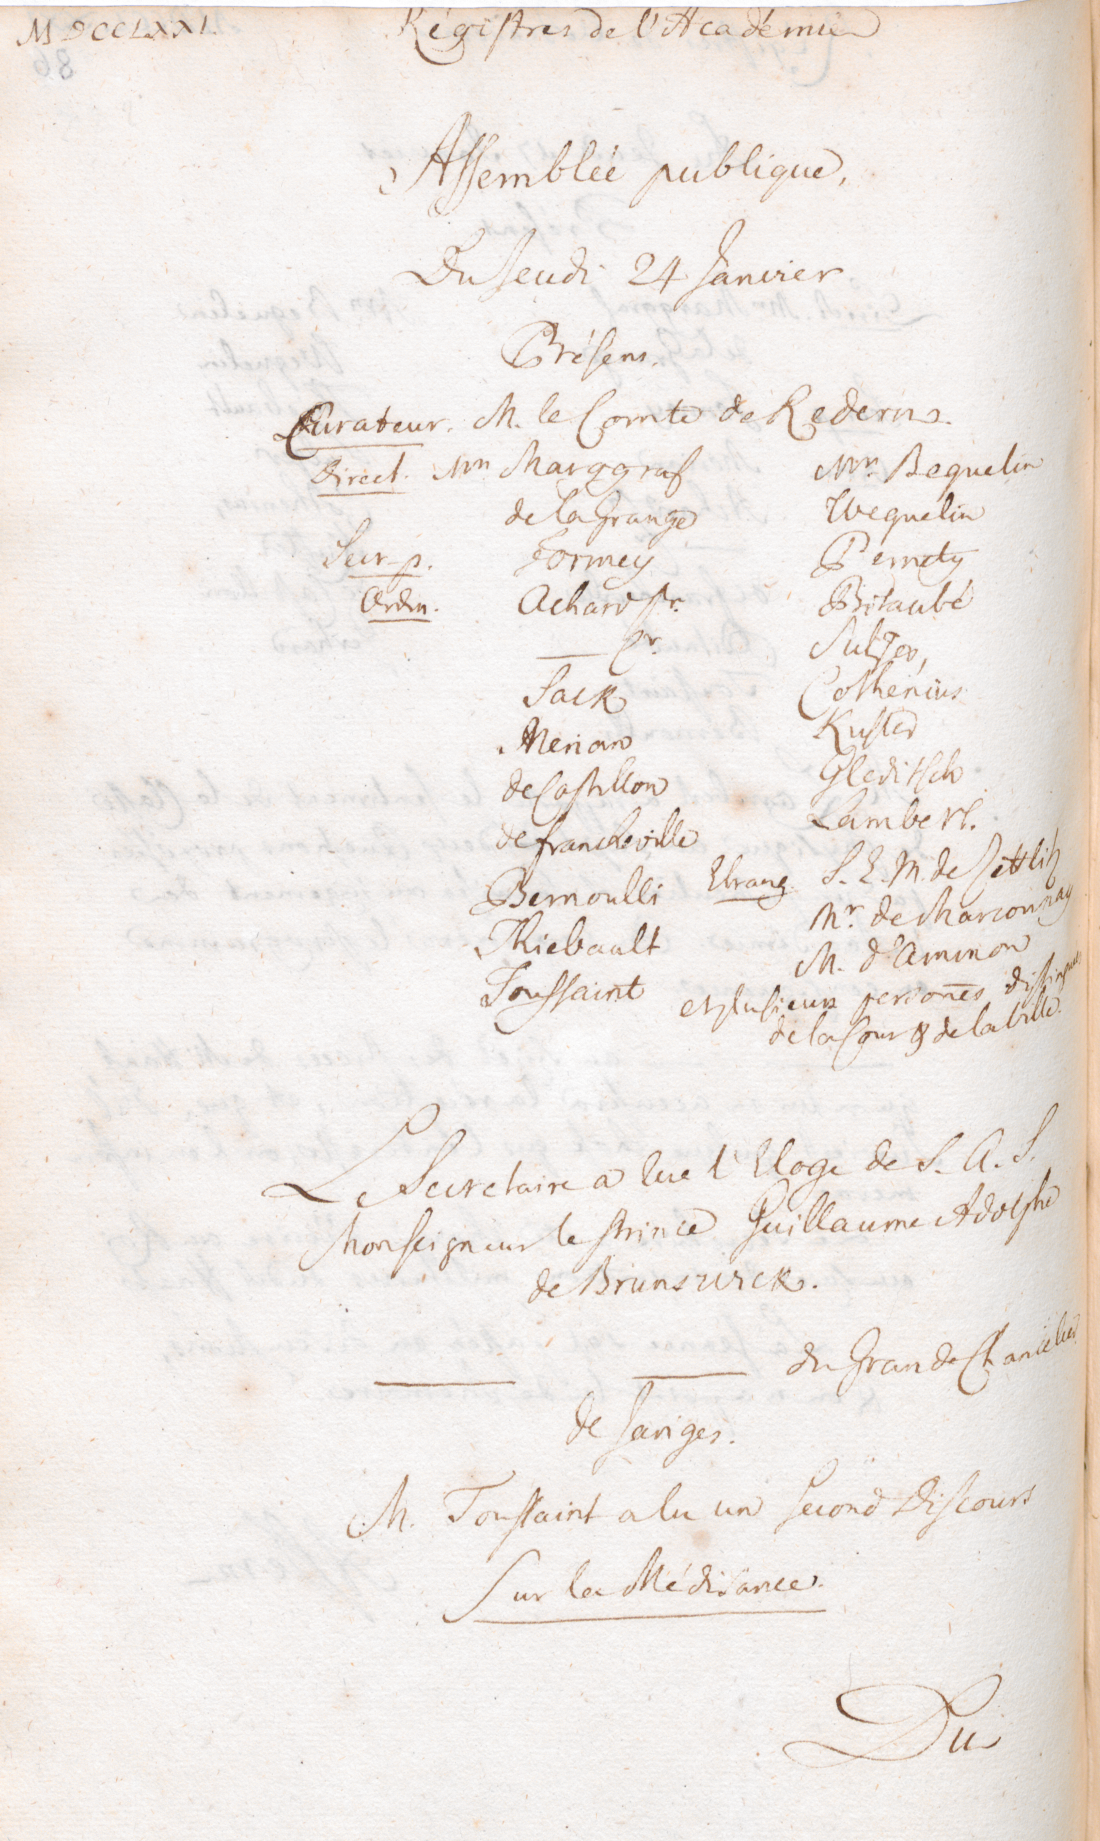 MDCCLXXI.
Régistres de l'Académie
Assemblée publique,
Du Jeudi 24 Janvier
Présens.
Curateur. M. le Comte de Redern.
Direct. Mrs Marggraf
de la Grange
Secr. p. Formey
Ordin. Achard Sr.
——— Jr.
Sack
Merian
de Castillon
de francheville
Bernoulli
Thiebault
Toussaint
Mrs. Beguelin
Weguelin
Pernety
Bitaubé
Sulzer,
Cothenius
Kuster
Gleditsch
Lambert.
Etrang. S. E. M. de Zettlitz
Mr. de Marconnay
M. d'Ammon
et plusieurs persones distinguées
de la Cour & de la Ville.
Le Secretaire a lue l'Eloge de S. A. S.
Monseigneur le Prince Guillaume Adolphe
de Brunswick.
——— ——— du Grand Chancelier
de Jariges.
M. Toussaint a lu un Second Discours
Sur la Médisance.
Du